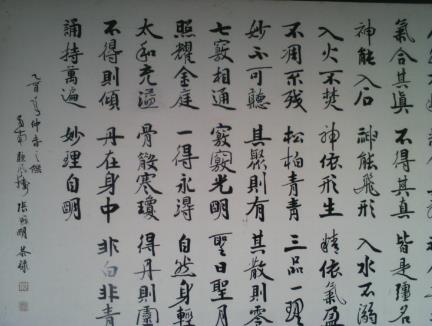 氣合其真 不得其真 皆是彊名
神能入石 神能飛形 入水不溺
入火不焚 神依形生 精依氣盈
不凋不残 松柏青青 三品一理
妙不可聽 其聚則有 其散則零
七竅相通 竅竅光明 聖日聖月
照耀金庭 一得永得 自然身輕
太和充溢 骨寒瓊 得丹則靈
不得則傾 丹在身中 非白非青
誦持萬遍 妙理自明
仲春之
恭録